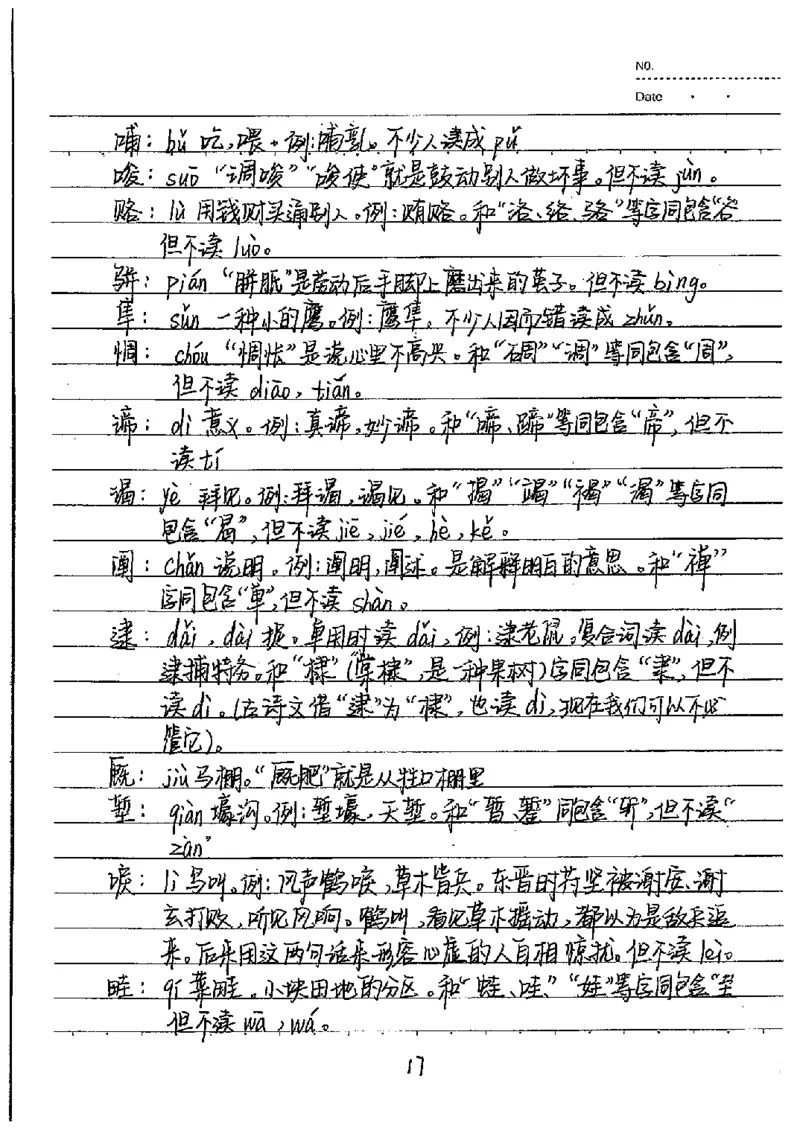 NO.
Date
哺：bǔ 吃，喂。例：哺乳。不少人读成 pǔ
唆：suō “调唆”“唆使”就是鼓动别人做坏事。但不读 jùn。
赂：lù 用钱财买通别人。例：贿赂。和“洛、络、骆”等字同包含“各
但不读 luò。
骈：pián “胼胝”是劳动后手脚上磨出来的茧子。但不读 bìng。
隼：sǔn 一种小的鹰。例：鹰隼，不少人因而错读成 zhǔn。
惆：chóu “惆怅”是说心里不高兴。和“碉”“调”等同包含“周”，
但不读 diāo，tián。
谛：dì 意义。例：真谛，妙谛。和“啼、蹄”等同包含“帝”，但不
读 tí
谒：yè 拜见。例：拜谒，谒见。和“揭”“竭”“褐”“渴”等字同
包含“曷”，但不读 jiē，jié，hè，kě。
阐：chǎn 说明。例：阐明，阐述。是解释明白的意思。和“禅”
字同包含“单”，但不读 shàn。
逮：dǎi，dài 捉。单用时读 dǎi，例：逮花鼠。复合词读 dài，例
逮捕特务。和“棣”（棠棣”，是一种果树）字同包含“隶”，但不
读 dì。（古诗文借“逮”为“棣”，也读 dì，现在我们可以不必
管它）。
厩：jiù 马棚。“厩肥”就是从牲口棚里
堑：qiàn 壕沟。例：堑壕，天堑。和“暂、錾”同包含“斩”，但不读“
zàn”
唳：lì 鸟叫。例：风声鹤唳，草木皆兵。东晋时苻坚被谢安、谢
玄打败，听见风响。鹤叫，看见草木摇动，都以为是敌兵追
来。后来用这两句话来形容心虚的人自相惊扰。但不读 lèi。
畦：qí 菜畦。小块田地的分区。和“蛙、哇”、“娃”等字同包含“圭
但不读 wā，wá。
17